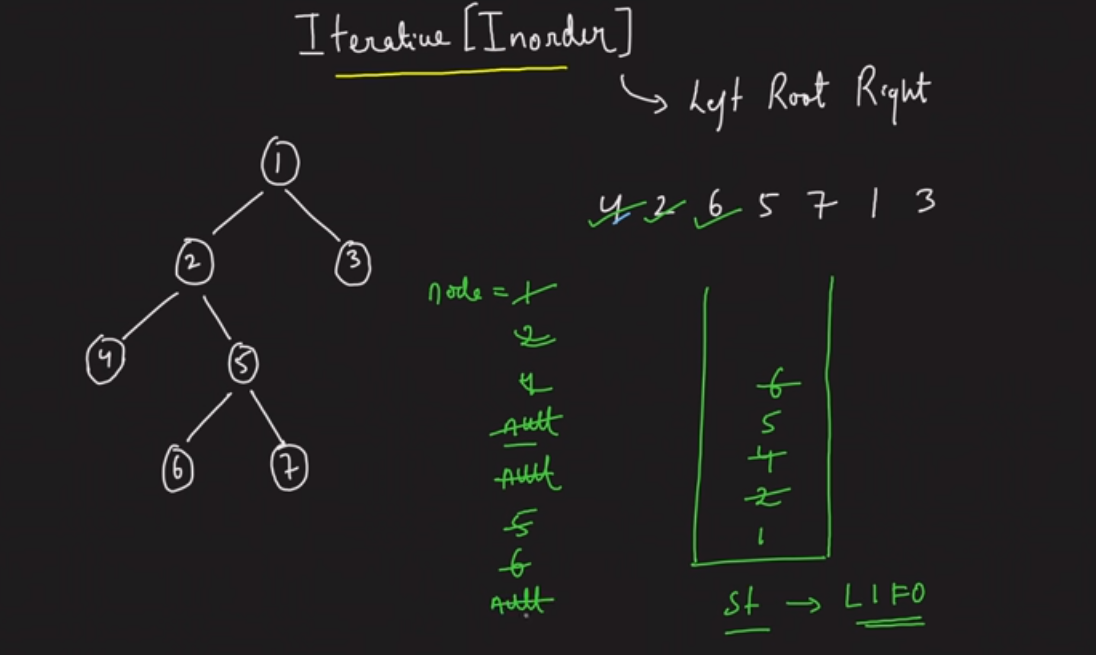 Iterative [Inorder]
Left Root Right
1
4 2 6 5 7 1 3
2 3
node = 1
2
4 5
4
null
null
6 7
5
6
null
6
5
4
2
1
st → LIFO